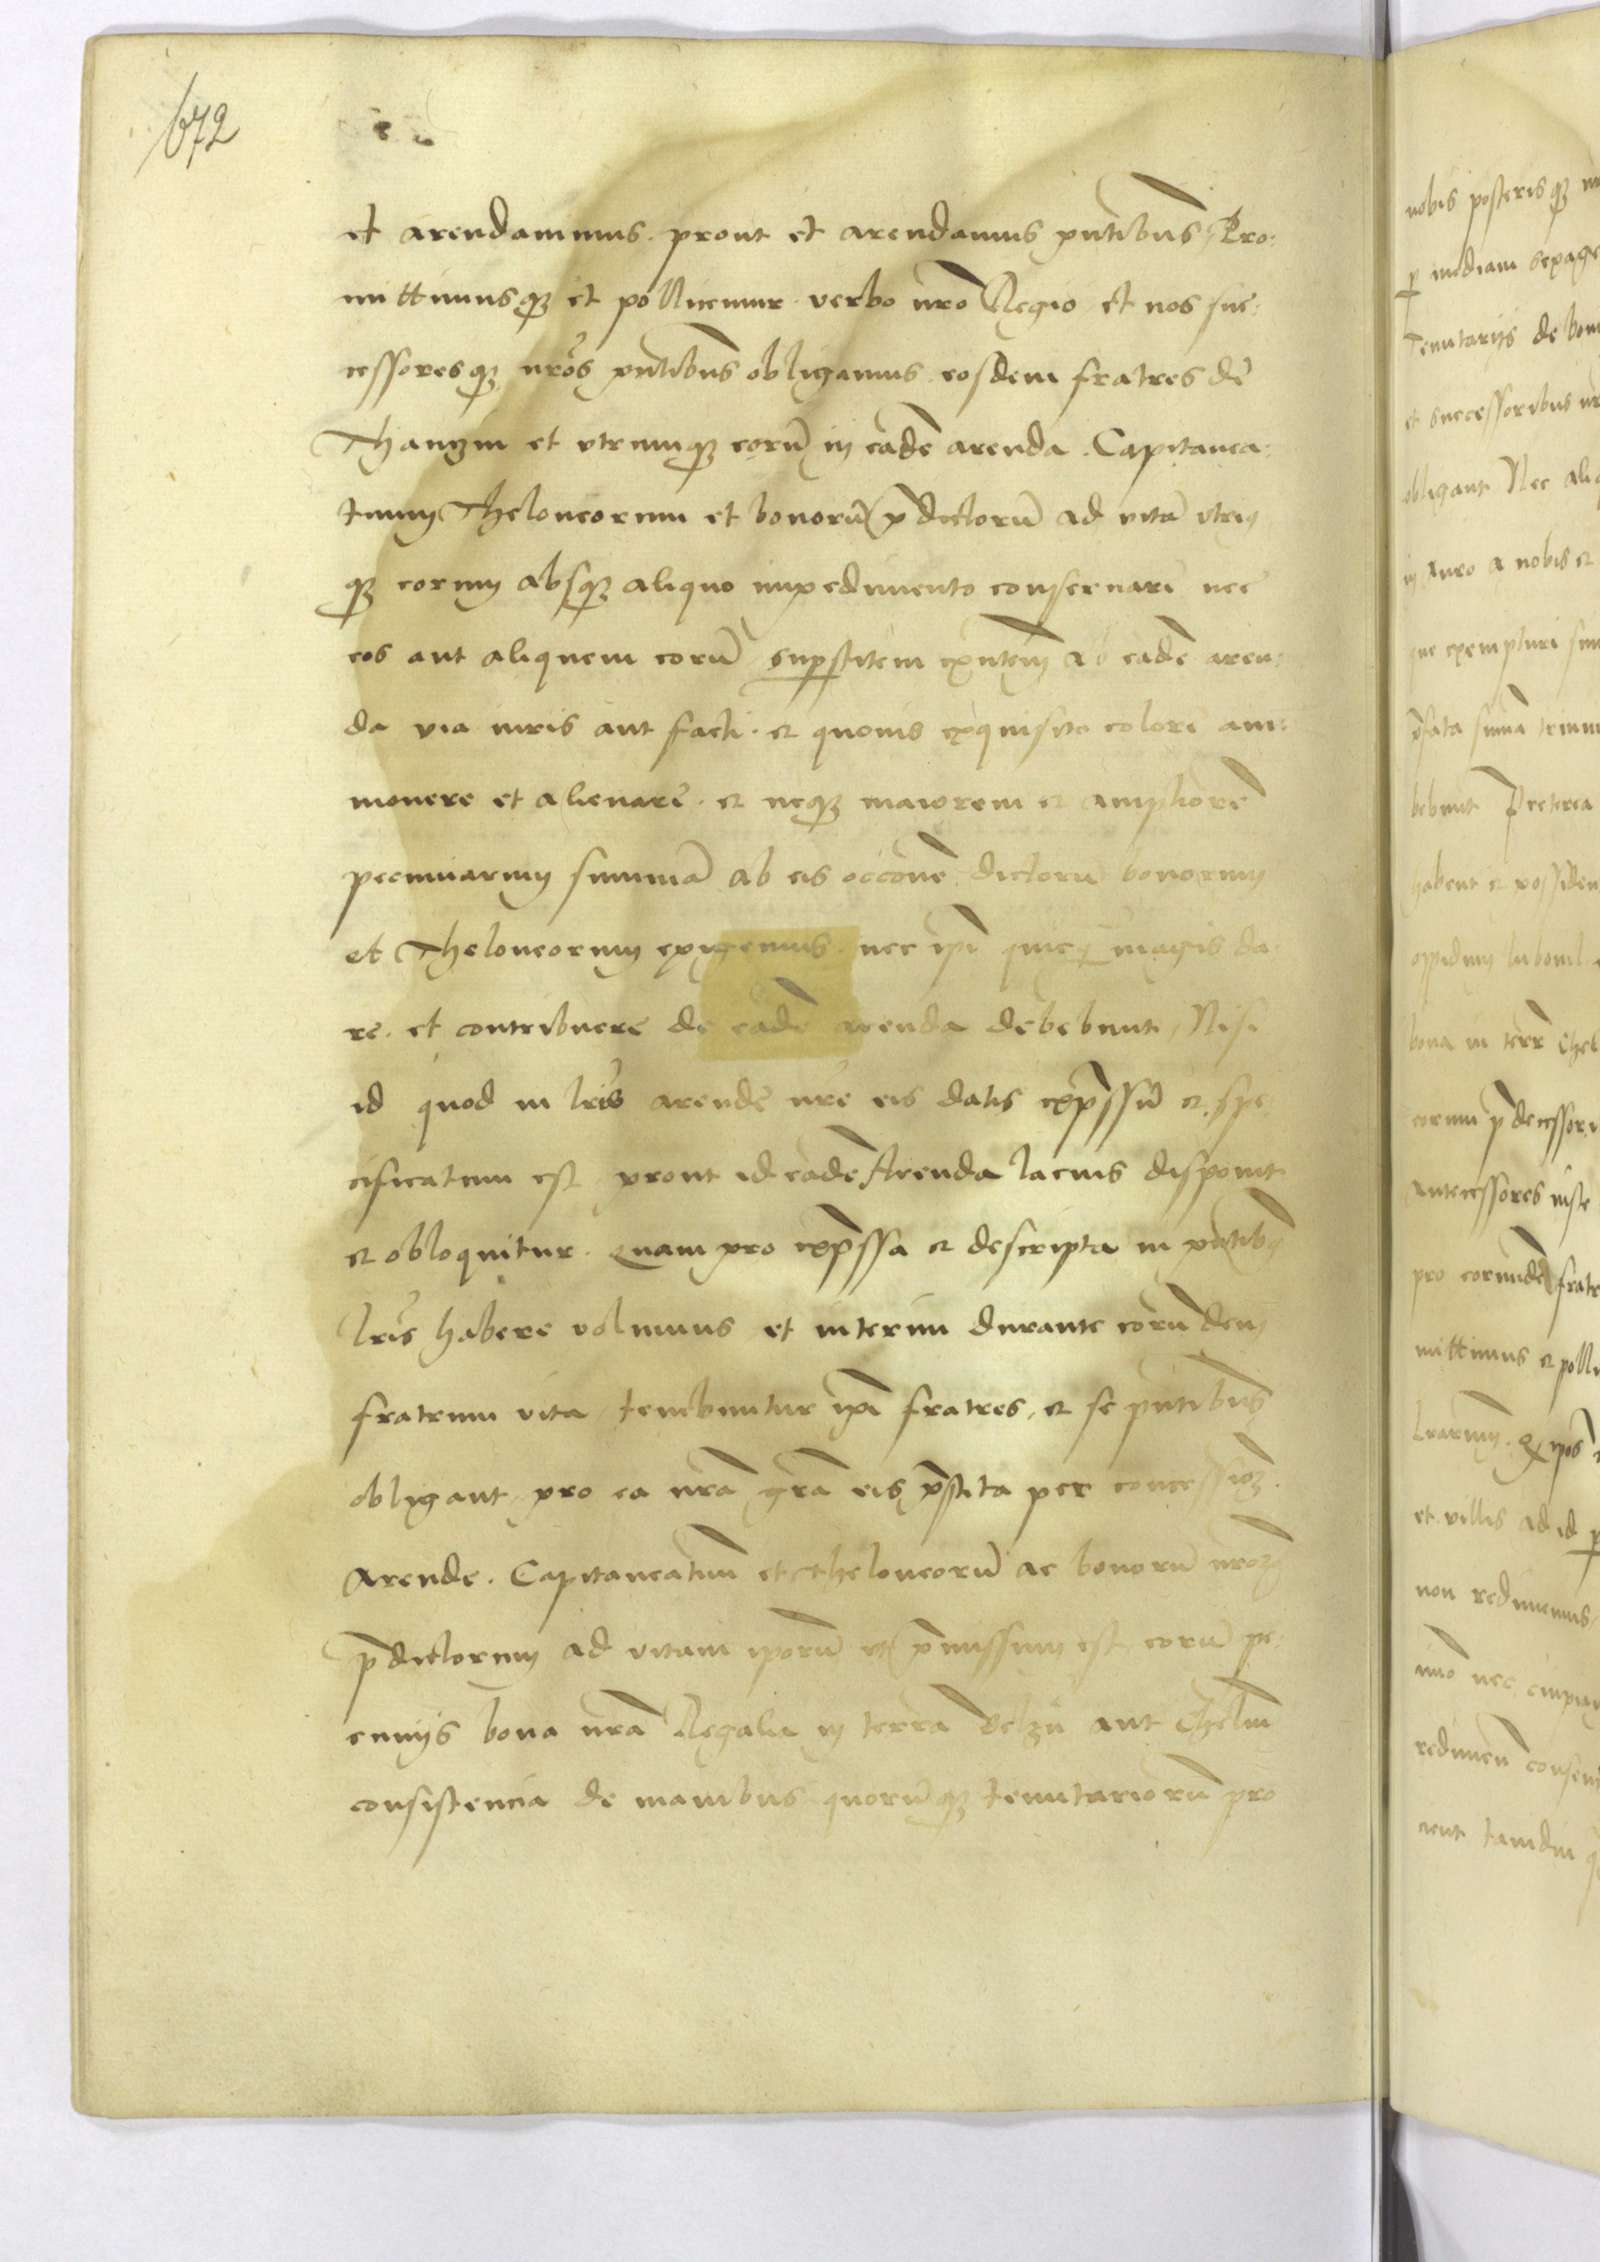 672
et arendamimus. prout et arendamus pntibus, Pro:
mittimusq3 et pollicemur verbo nro Regio, et nos suc:
cessoresq3 nros pntibus obligamus. eosdem fratres de
et utrumq3 eoru in eade arenda. Capitanea:
tuum Theloneorum et bonoru pdictoru ad vita utrius
q3 eorum absq3 aliquo impedimento conservare nec
eos aut aliquem eoru supstitem exntem ab eade aren:
da via iuris aut facti. et quovis exquisito colore am:
movere et alienare. et neq3 maiorem et ampliore
pecuniarum summa ab eis occone dictoru bonorum
et Theloneorum exigemus. nec ipi quicq magis da:
re. et contribuere de eade arenda debebunt, Nisi
id quod in lris arende nre eis datis expssu et spe
cificatum est prout id eade Arenda lacius disponit
et obloquitur. quam pro expssa et descripta in pntibus
lris habere volumus et interim durante eorundem
fratrum vita, tenebuntur ipi fratres, et se pntibus
obligant, pro ea nra gra eis pstita per concessione
Arende. Capitaneatuum et theloneoru ac bonoru nroru
pdictorum ad vitam iporu ut pmissum est eoru pe:
cuniis bona nra Regalia in terra Belzen aut Chelm
consistencia de manibus quoruq3 tenutarioru pro
nobis posterisq3
p mediam sexage
Tenutariis de bon
et successoribus nr
obligant Nec aliq
in auro a nobis et
exempturi sun
pfata suma trium
bebunt Preterea
habent et possiden
oppidum luboml
bona in terr Chel
eorum pdecessor
antecessores
pro eorunde fratr
mittimus et polli
lrarum.
et villis ad id p
non redimemus,
imo nec
redimen consen
tamdiu q